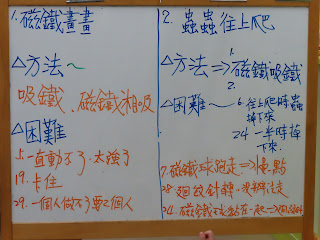 1. 磁鐵畫畫
△方法~
吸鐵、磁鐵相吸
△困難
5. 一直動不了.太強了
19. 卡住
29. 一個人做不了要2個人
2. 蟲蟲往上爬
△方法⇒1.磁鐵吸鐵
2.
△困難~ 6. 往上爬時蟲
掉下來
24 一半時掉
下來.
7. 磁鐵球跑走⇒1量點
28 迴紋針轉,
24. 磁鐵